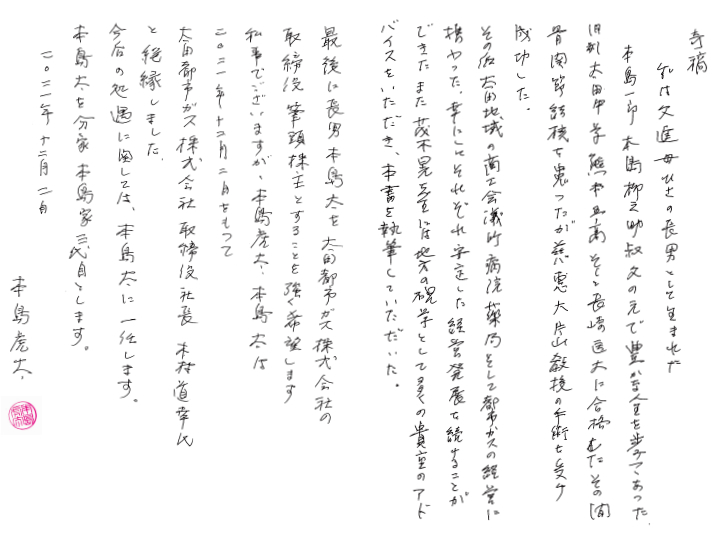 寄稿
私は父進母ひさの長男として生まれた
本島一郎 本島柳之助叔父の元で豊かな人生を歩みつつあった
旧制太田中学 熊本五高 そして長崎医大に合格した その間
骨関節結核を患ったが慈恵大片山教授の手術を受け
成功した。
その后太田地域の商工会議所 病院 薬局そして都市ガスの経営に
携わった。幸にしてそれぞれ安定した経営発展を続けることが
できた また茂木晃 には地方の碩学として多くの貴重のアド
バイスをいただき、本書を執筆していただいた。
最後に長男 本島太を 太田都市ガス株式会社の
取締役 筆頭株主とすることを強く希望します
私事でございますが、本島虎太、本島太は
二〇二一年十二月二日をもって
太田都市ガス株式会社 取締役社長 木村道幸氏
と絶縁しました。
今后の処遇に関しては、本島太に一任します。
本島太を分家 本島家三代目とします。
二〇二一年 十二月 二日
本島虎太